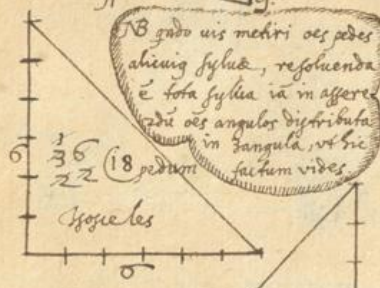 NB qñdo uis metiri oẽs pedes
alicuiq syluæ, resoluenda
ẽ tota sylua iã in
oẽs angulos distributa
in 3angula, vt hic
factum vides.
6
36
22
18 pedum
Isosceles
6